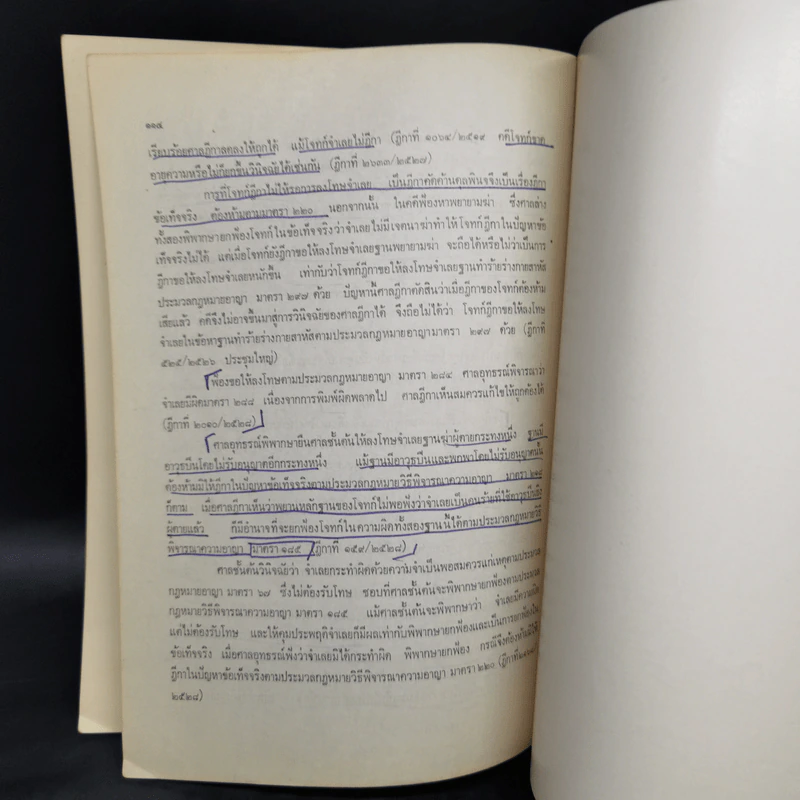 ๑๑๔
เรียบร้อยศาลฎีกาลดลงให้ถูกได้ แม้โจทก์จำเลยไม่ฎีกา (ฎีกาที่ ๑๐๖๔/๒๕๑๙ คดีโจทก์ขาด
อายความหรือไม่ก็ยกขึ้นวินิจฉัยได้เช่นกัน (ฎีกาที่ ๒๖๓๓/๒๕๒๗)
การที่โจทก์ฎีกาไม่ให้รอการลงโทษจำเลย เป็นฎีกาคัดค้านดุลพินิจจึงเป็นเรื่องฎีกา
ข้อเท็จจริง ต้องห้ามตามมาตรา ๒๒๐ นอกจากนั้น ในคดีฟ้องหาพยายามฆ่า ซึ่งศาลล่าง
ทั้งสองพิพากษายกฟ้องโจทก์ในข้อเท็จจริงว่าจำเลยไม่มีเจตนาฆ่าทำให้โจทก์ฎีกาในปัญหาข้อ
เท็จจริงไม่ได้ แต่เมื่อโจทก์ยังฎีกาขอให้ลงโทษจำเลยฐานพยายามฆ่า จะถือได้หรือไม่ว่าเป็นการ
ฎีกาขอให้ลงโทษจำเลยหนักขึ้น เท่ากับว่าโจทก์ฎีกาขอให้ลงโทษจำเลยฐานทำร้ายร่างกายสาหัส
ประมวลกฎหมายอาญา มาตรา ๒๙๗ ด้วย ปัญหานี้ศาลฎีกาตัดสินว่าเมื่อฎีกาของโจทก์ต้องห้าม
เสียแล้ว คดีจึงไม่อาจขึ้นมาสู่การวินิจฉัยของศาลฎีกาได้ จึงถือไม่ได้ว่า โจทก์ฎีกาขอให้ลงโทษ
จำเลยในข้อหาฐานทำร้ายร่างกายสาหัสตามประมวลกฎหมายอาญามาตรา ๒๙๗ ด้วย (ฎีกาที่
๕๒๕/๒๕๒๖ ประชุมใหญ่)
ฟ้องขอให้ลงโทษตามประมวลกฎหมายอาญา มาตรา ๒๘๔ ศาลอุทธรณ์พิจารณาว่า
จำเลยมีผิดมาตรา ๒๘๘ เนื่องจากการพิมพ์ผิดพลาดไป ศาลฎีกาเห็นสมควรแก้ไขให้ถูกต้องได้
(ฎีกาที่ ๒๐๑๐/๒๕๒๘)
ศาลอุทธรณ์พิพากษายืนศาลชั้นต้นให้ลงโทษจำเลยฐานฆ่าผู้ตายกระทงหนึ่ง ฐานมี
อาวุธปืนโดยไม่รับอนุญาตอีกกระทงหนึ่ง แม้ฐานมีอาวุธปืนและพกพาโดยไม่รับอนุญาตนั้น
ต้องห้ามมิให้ฎีกาในปัญหาข้อเท็จจริงตามประมวลกฎหมายวิธีพิจารณาความอาญา มาตรา ๒๑๘
ก็ตาม เมื่อศาลฎีกาเห็นว่าพยานหลักฐานของโจทก์ไม่พอฟังว่าจำเลยเป็นคนร้ายที่ใช้อาวุธปืนยิง
ผู้ตายแล้ว ก็มีอำนาจที่จะยกฟ้องโจทก์ในความผิดทั้งสองฐานนี้ได้ตามประมวลกฎหมายวิธี
พิจารณาความอาญา มาตรา ๑๘๕ (ฎีกาที่ ๑๕๙/๒๕๒๘)
ศาลชั้นต้นวินิจฉัยว่า จำเลยกระทำผิดด้วยความจำเป็นพอสมควรแก่เหตุตามประมวล
กฎหมายอาญา มาตรา ๖๗ ซึ่งไม่ต้องรับโทษ ชอบที่ศาลชั้นต้นจะพิพากษายกฟ้องตามประมวล
กฎหมายวิธีพิจารณาความอาญา มาตรา ๑๘๕ แม้ศาลชั้นต้นจะพิพากษาว่า จำเลยมีความผิด
แต่ไม่ต้องรับโทษ และให้คุมประพฤติจำเลยก็มีผลเท่ากับพิพากษายกฟ้องและเป็นการยกฟ้องใน
ข้อเท็จจริง เมื่อศาลอุทธรณ์ฟังว่าจำเลยมิได้กระทำผิด พิพากษายกฟ้อง กรณีจึงต้องห้ามมิให้
ฎีกาในปัญหาข้อเท็จจริงตามประมวลกฎหมายวิธีพิจารณาความอาญา มาตรา ๒๒๐
๒๕๒๘)